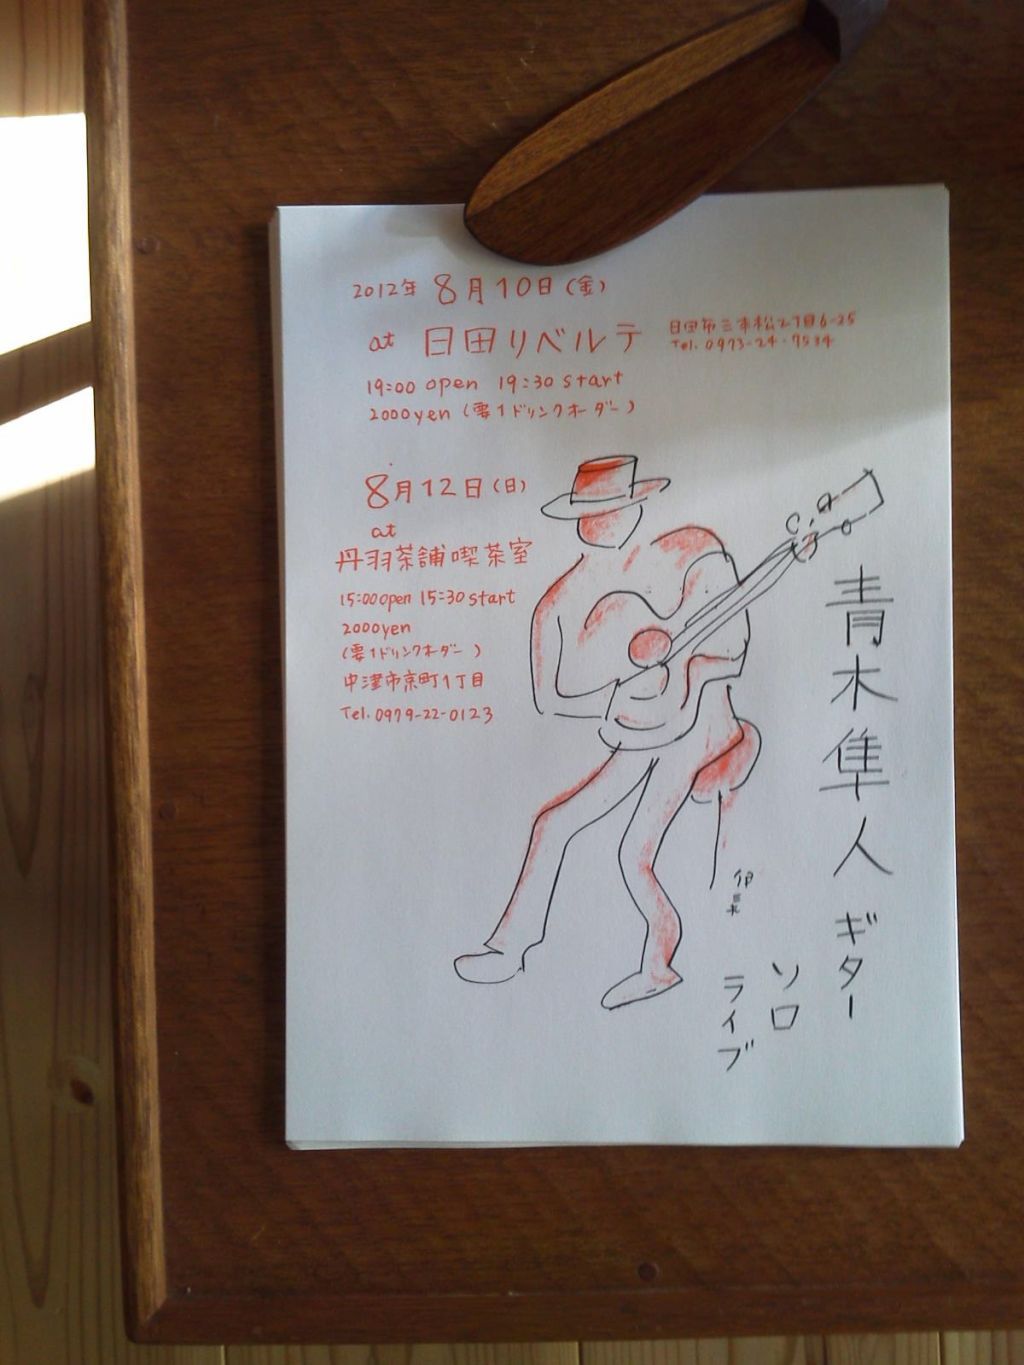 2012年 8月10日(金)
at 日田リベルテ
日田市三本松2丁目6-25
Tel. 0973-24-7534
19:00 open 19:30 start
2000yen (要1ドリンクオーダー)
8月12日(日)
at
丹羽茶舗喫茶室
15:00open 15:30start
2000yen
(要1ドリンクオーダー)
中津市京町1丁目
Tel. 0979-22-0123
青木隼人 ギター
ソロ
ライブ